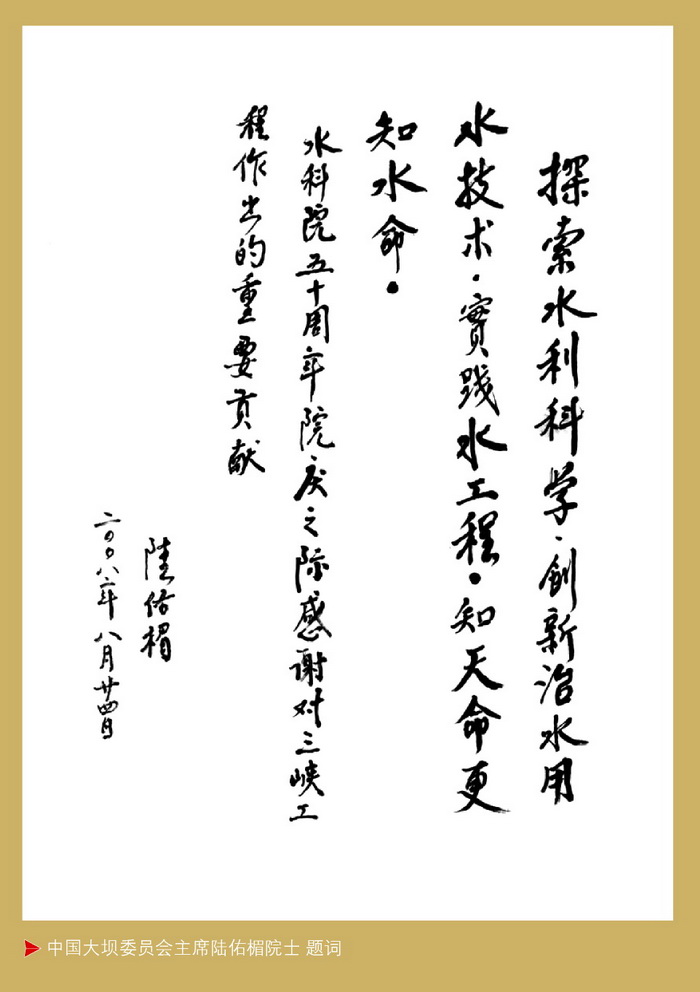 探索水利科学、创新治水用
水技术、實践水工程。知天命更
知水命。
水科院五十周年院庆之际感谢对三峡工
程作出的重要贡献
陆佑楣
二〇〇八年八月廿四日
中国大坝委员会主席陆佑楣院士 题词